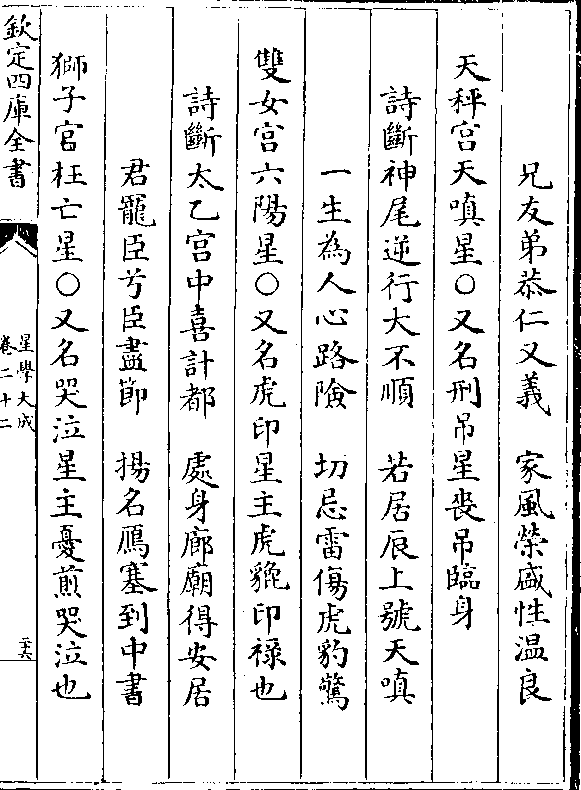 兄友弟恭仁又義　家風榮盛性温良
天秤宫天嗔星○又名刑吊星喪吊臨身
詩斷神尾逆行大不順　若居辰上號天嗔
一生為人心路險　切忌雷傷虎豹驚
雙女宫六陽星○又名虎印星主虎貔印禄也
詩斷太乙宫中喜計都　處身廊廟得安居
君寵臣兮臣盡節　揚名鴈塞到中書
獅子宫枉亡星○又名哭泣星主憂煎哭泣也
欽定四庫全書
星學大成
卷二十二
二十六